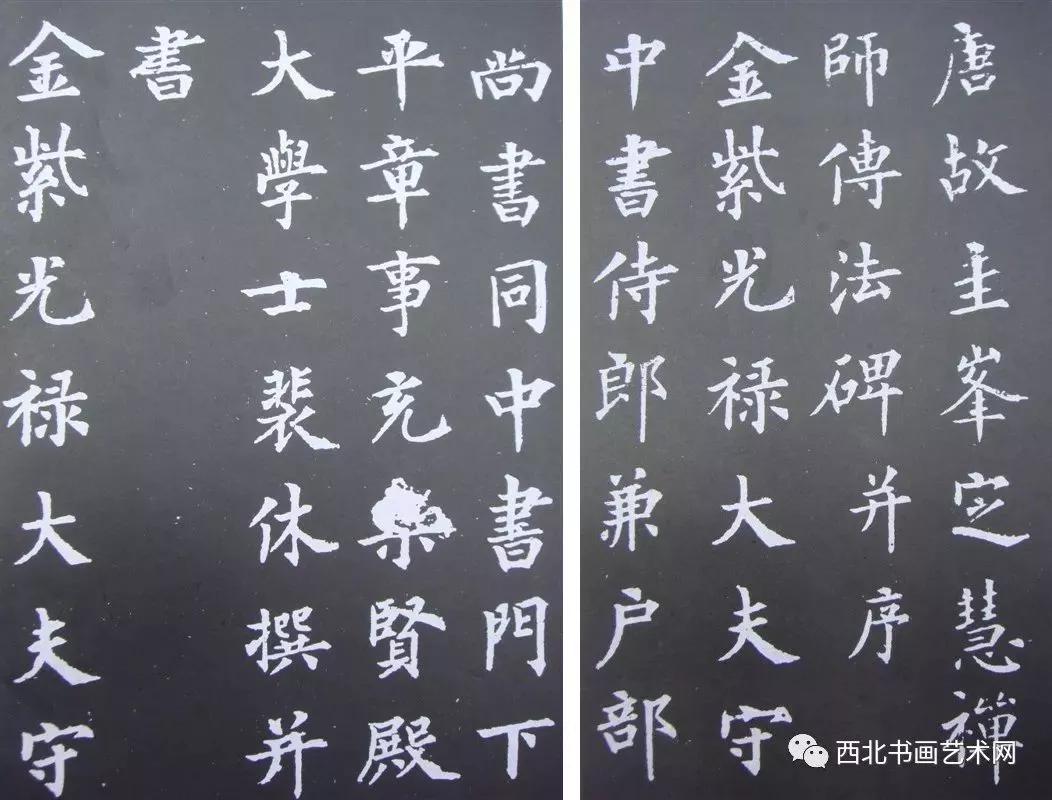 唐故圭峯定慧禪
師傳法碑并序
金紫光禄大夫守
中書侍郎兼户部
尚書同中書門下
平章事充集賢殿
大學士裴休撰并
書
金紫光禄大夫守
西北书画艺术网